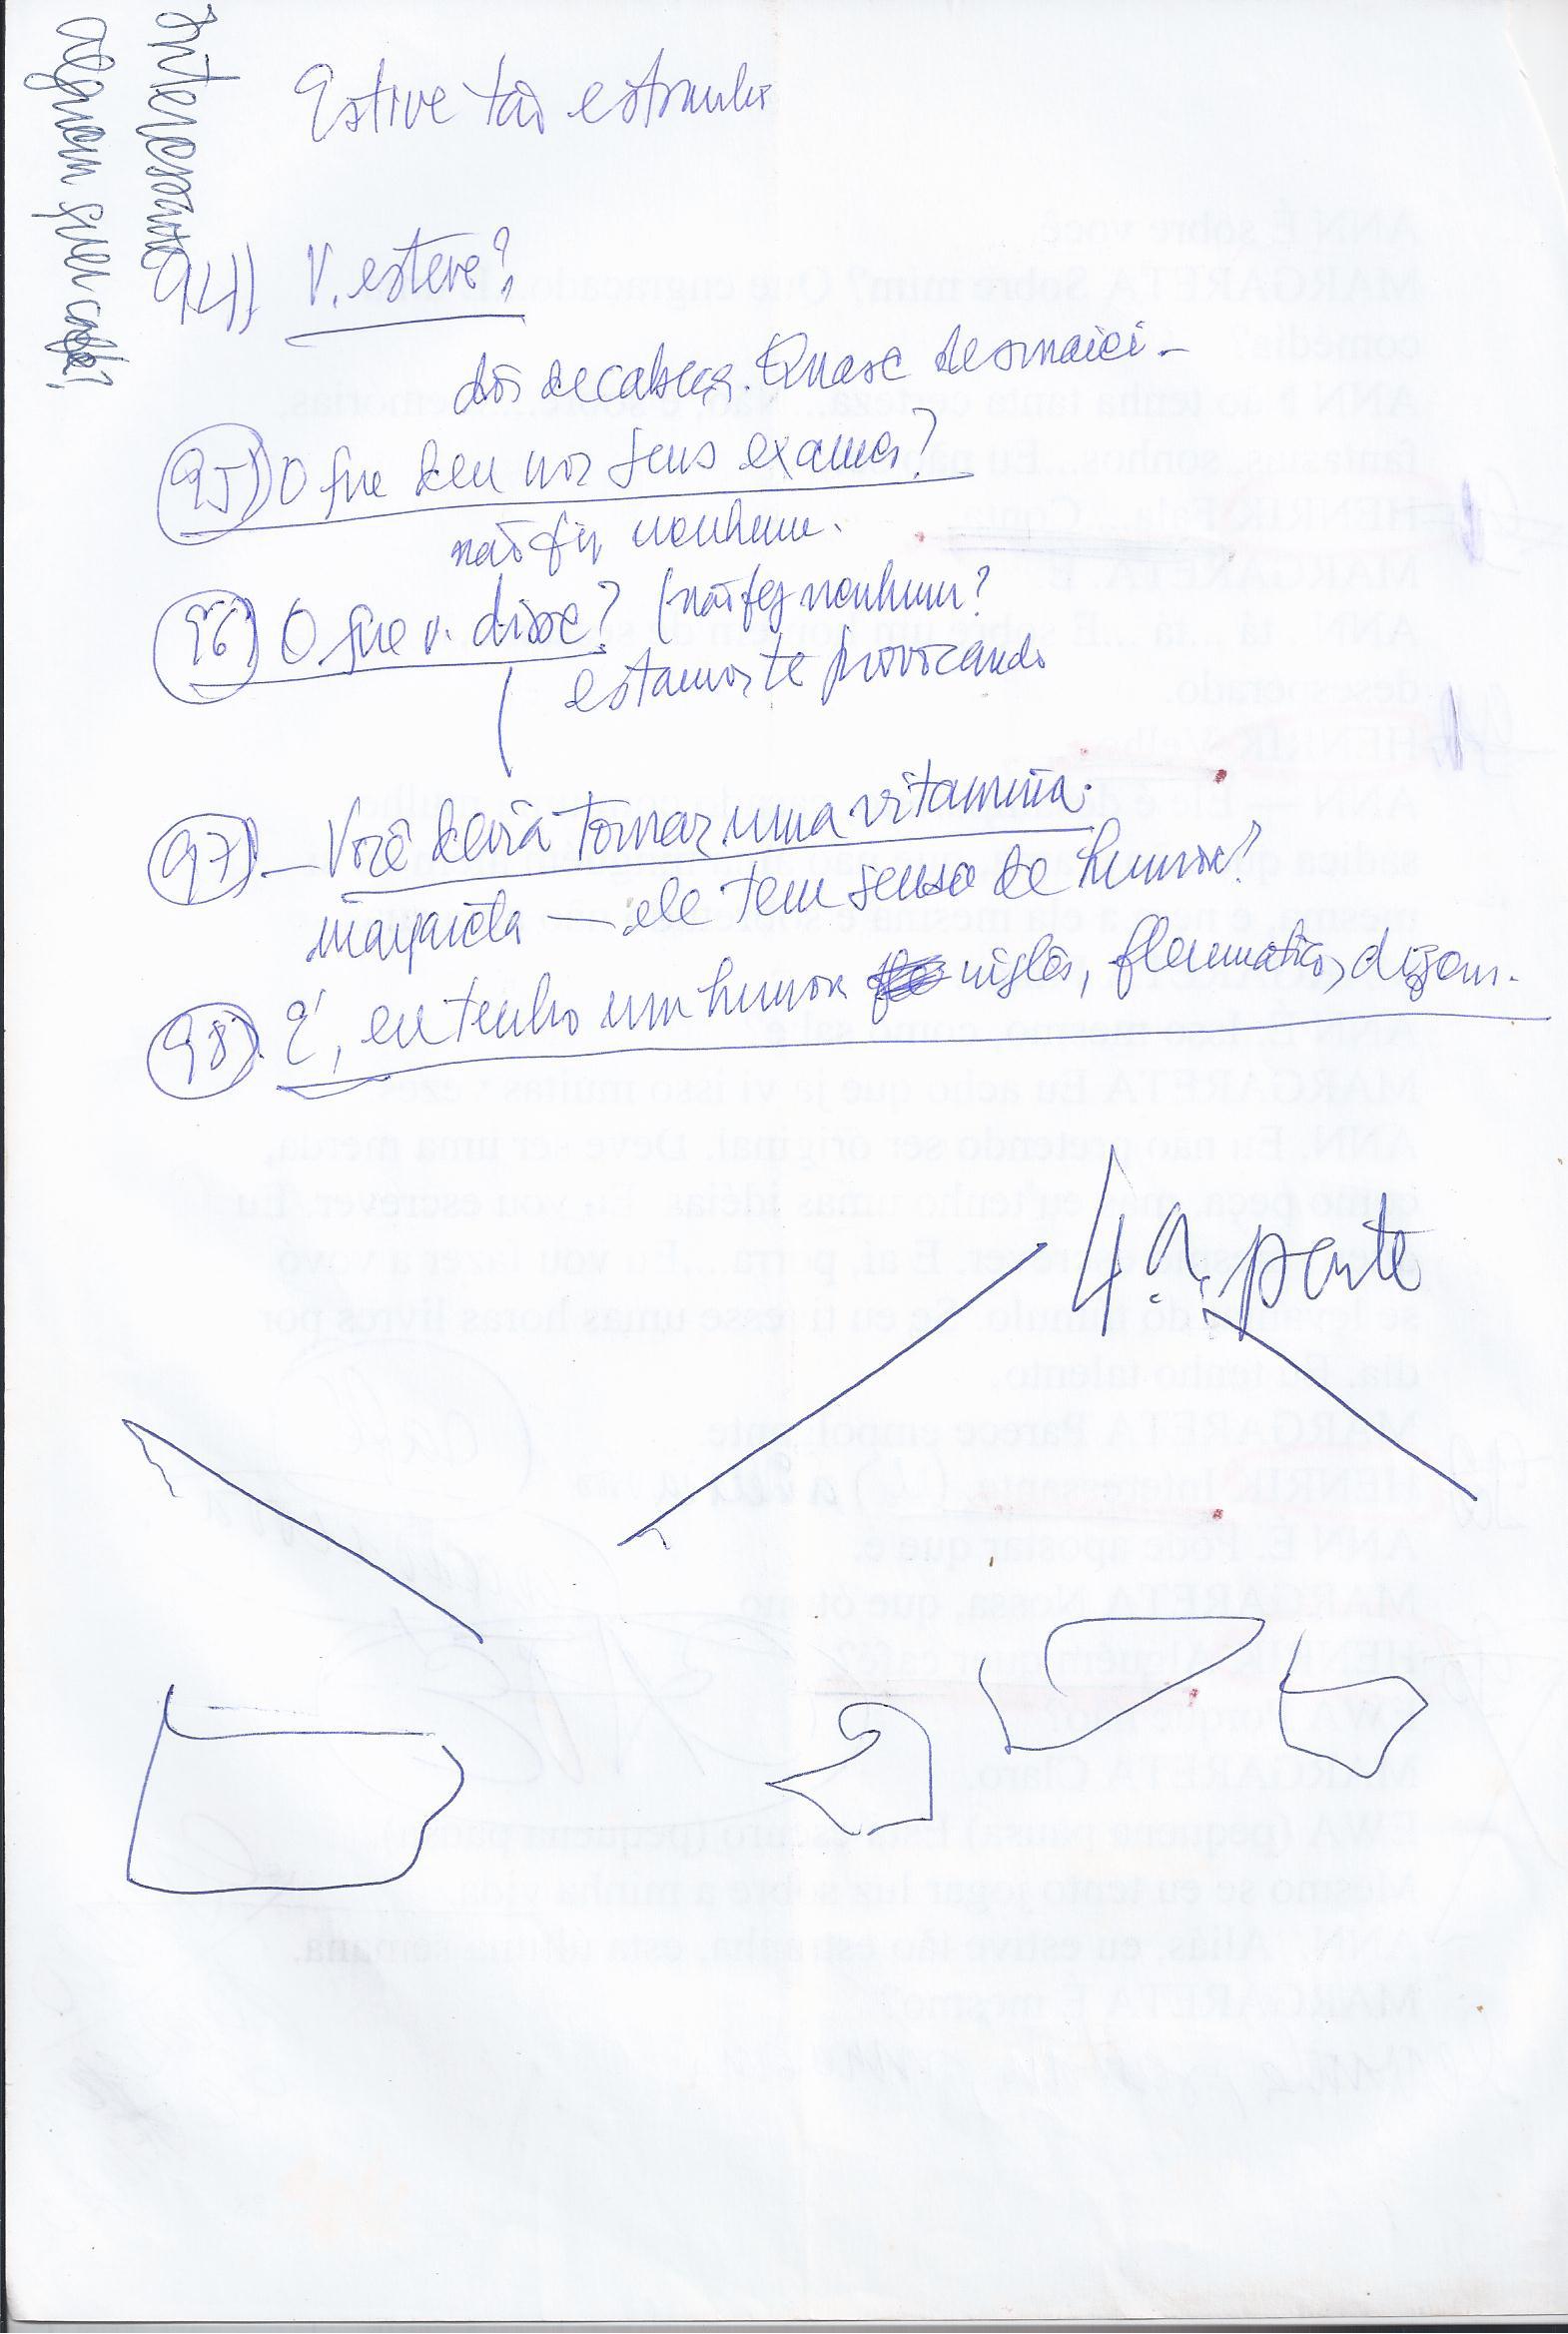 Interessante
alguem quer café?
Estive tão estranha
94) V. esteve?
dor de cabeça. Quase desmaiei -
95) O que deu nos seus exames?
não fiz nenhum.
96) O que v. disse? (não fez nenhum?
estamos te provocando
97) - Você devia tomar uma vitamina.
margareta - ele tem senso de humor?
98) É, eu tenho um humor inglês, fleumático, dizem.
4.a. parte